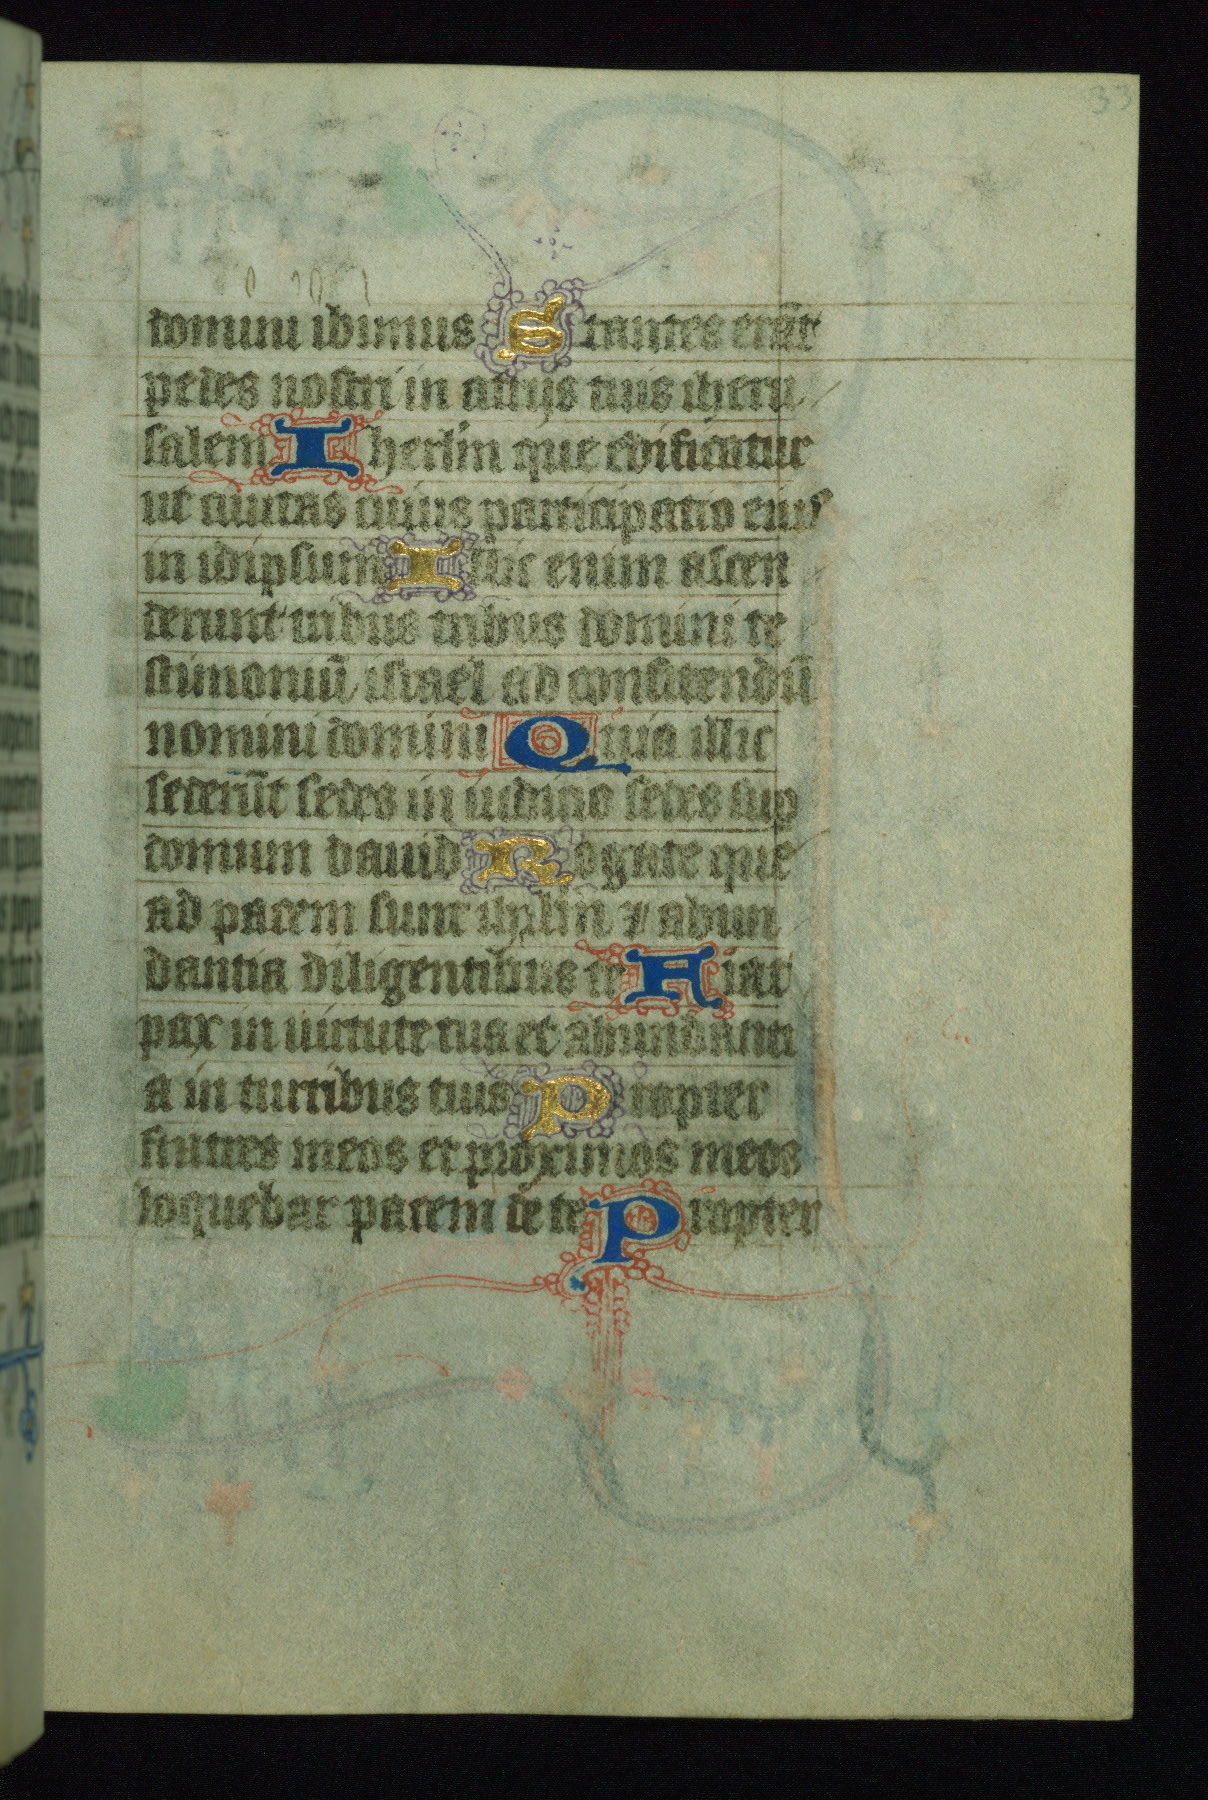 33
domini ibimus Stantes erāt
pedes nostri in atrijs tuis iheru
salem Iherlm̄ que edificatur
ut ciuitas cuius participatio eius
in idipsum Illic enim ascen
derunt tribus tribus domini te
stimoniū israel ad confitendū
nomini domini Quia illic
sederūt sedes in iudicio sedes sup
domum dauid Rogate que
ad pacem sunt ihrlm̄ ⁊ abun
dantia diligentibus te Fiat
pax in uirtute tua et abundanti
a in turribus tuis Propter
fratres meos et proximos meos
loquebar pacem de te Propter